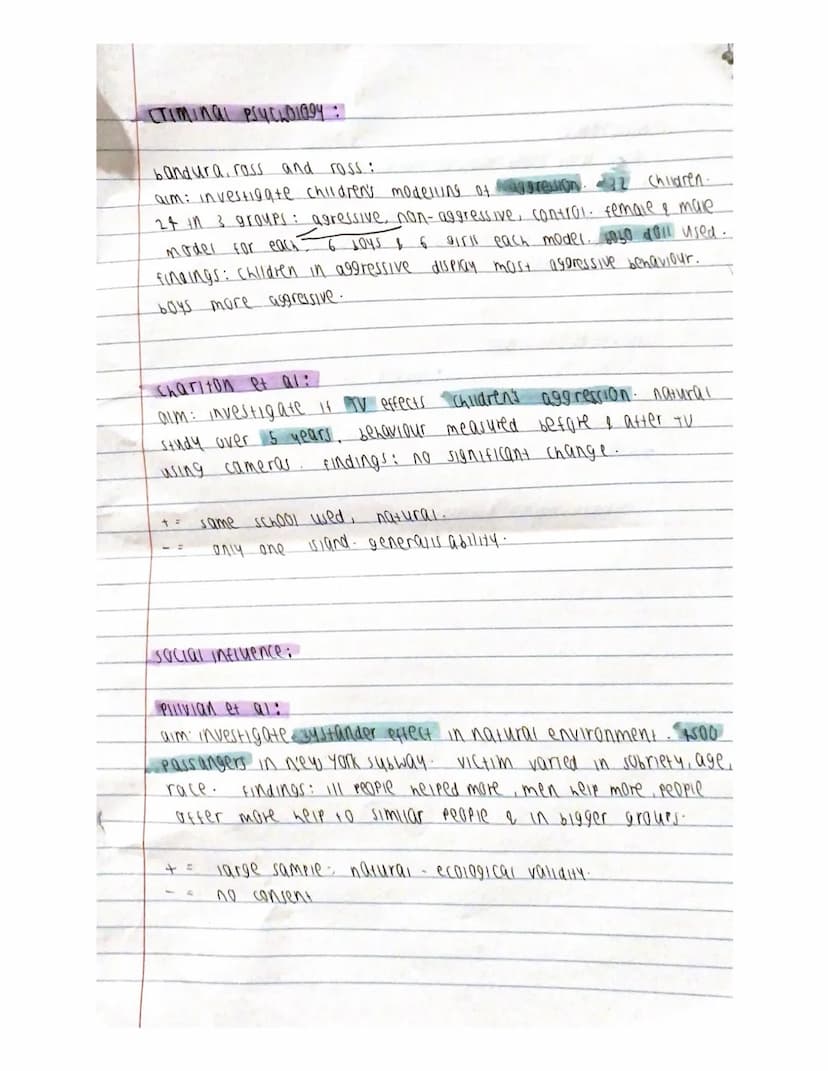 criminal psychology:
bandura, ross and ross:
aim: investigate children's modelling of aggression. children.
24 in 3 groups: agressive, non-aggressive, control. female & male
model for each. 6 boys & 6 girls each model. bobo doll used.
findings: children in aggressive display most aggressive behaviour.
boys more aggressive.
charlton et al:
aim: investigate if TV effects children's aggression. natural
study over 5 years. behaviour measured before & after TV
using cameras. findings: no significant change.
+ = same school used, natural.
- = only one island. generalisability.
social influence:
pilivian et al:
aim: investigate bystander effect in natural environment. 4500
passangers in new york subway. victim varied in sobriety, age,
race. findings: ill people helped more, men help more, people
offer more help to similar people & in bigger groups.
+ = large sample. natural - ecological validity.
- = no consent